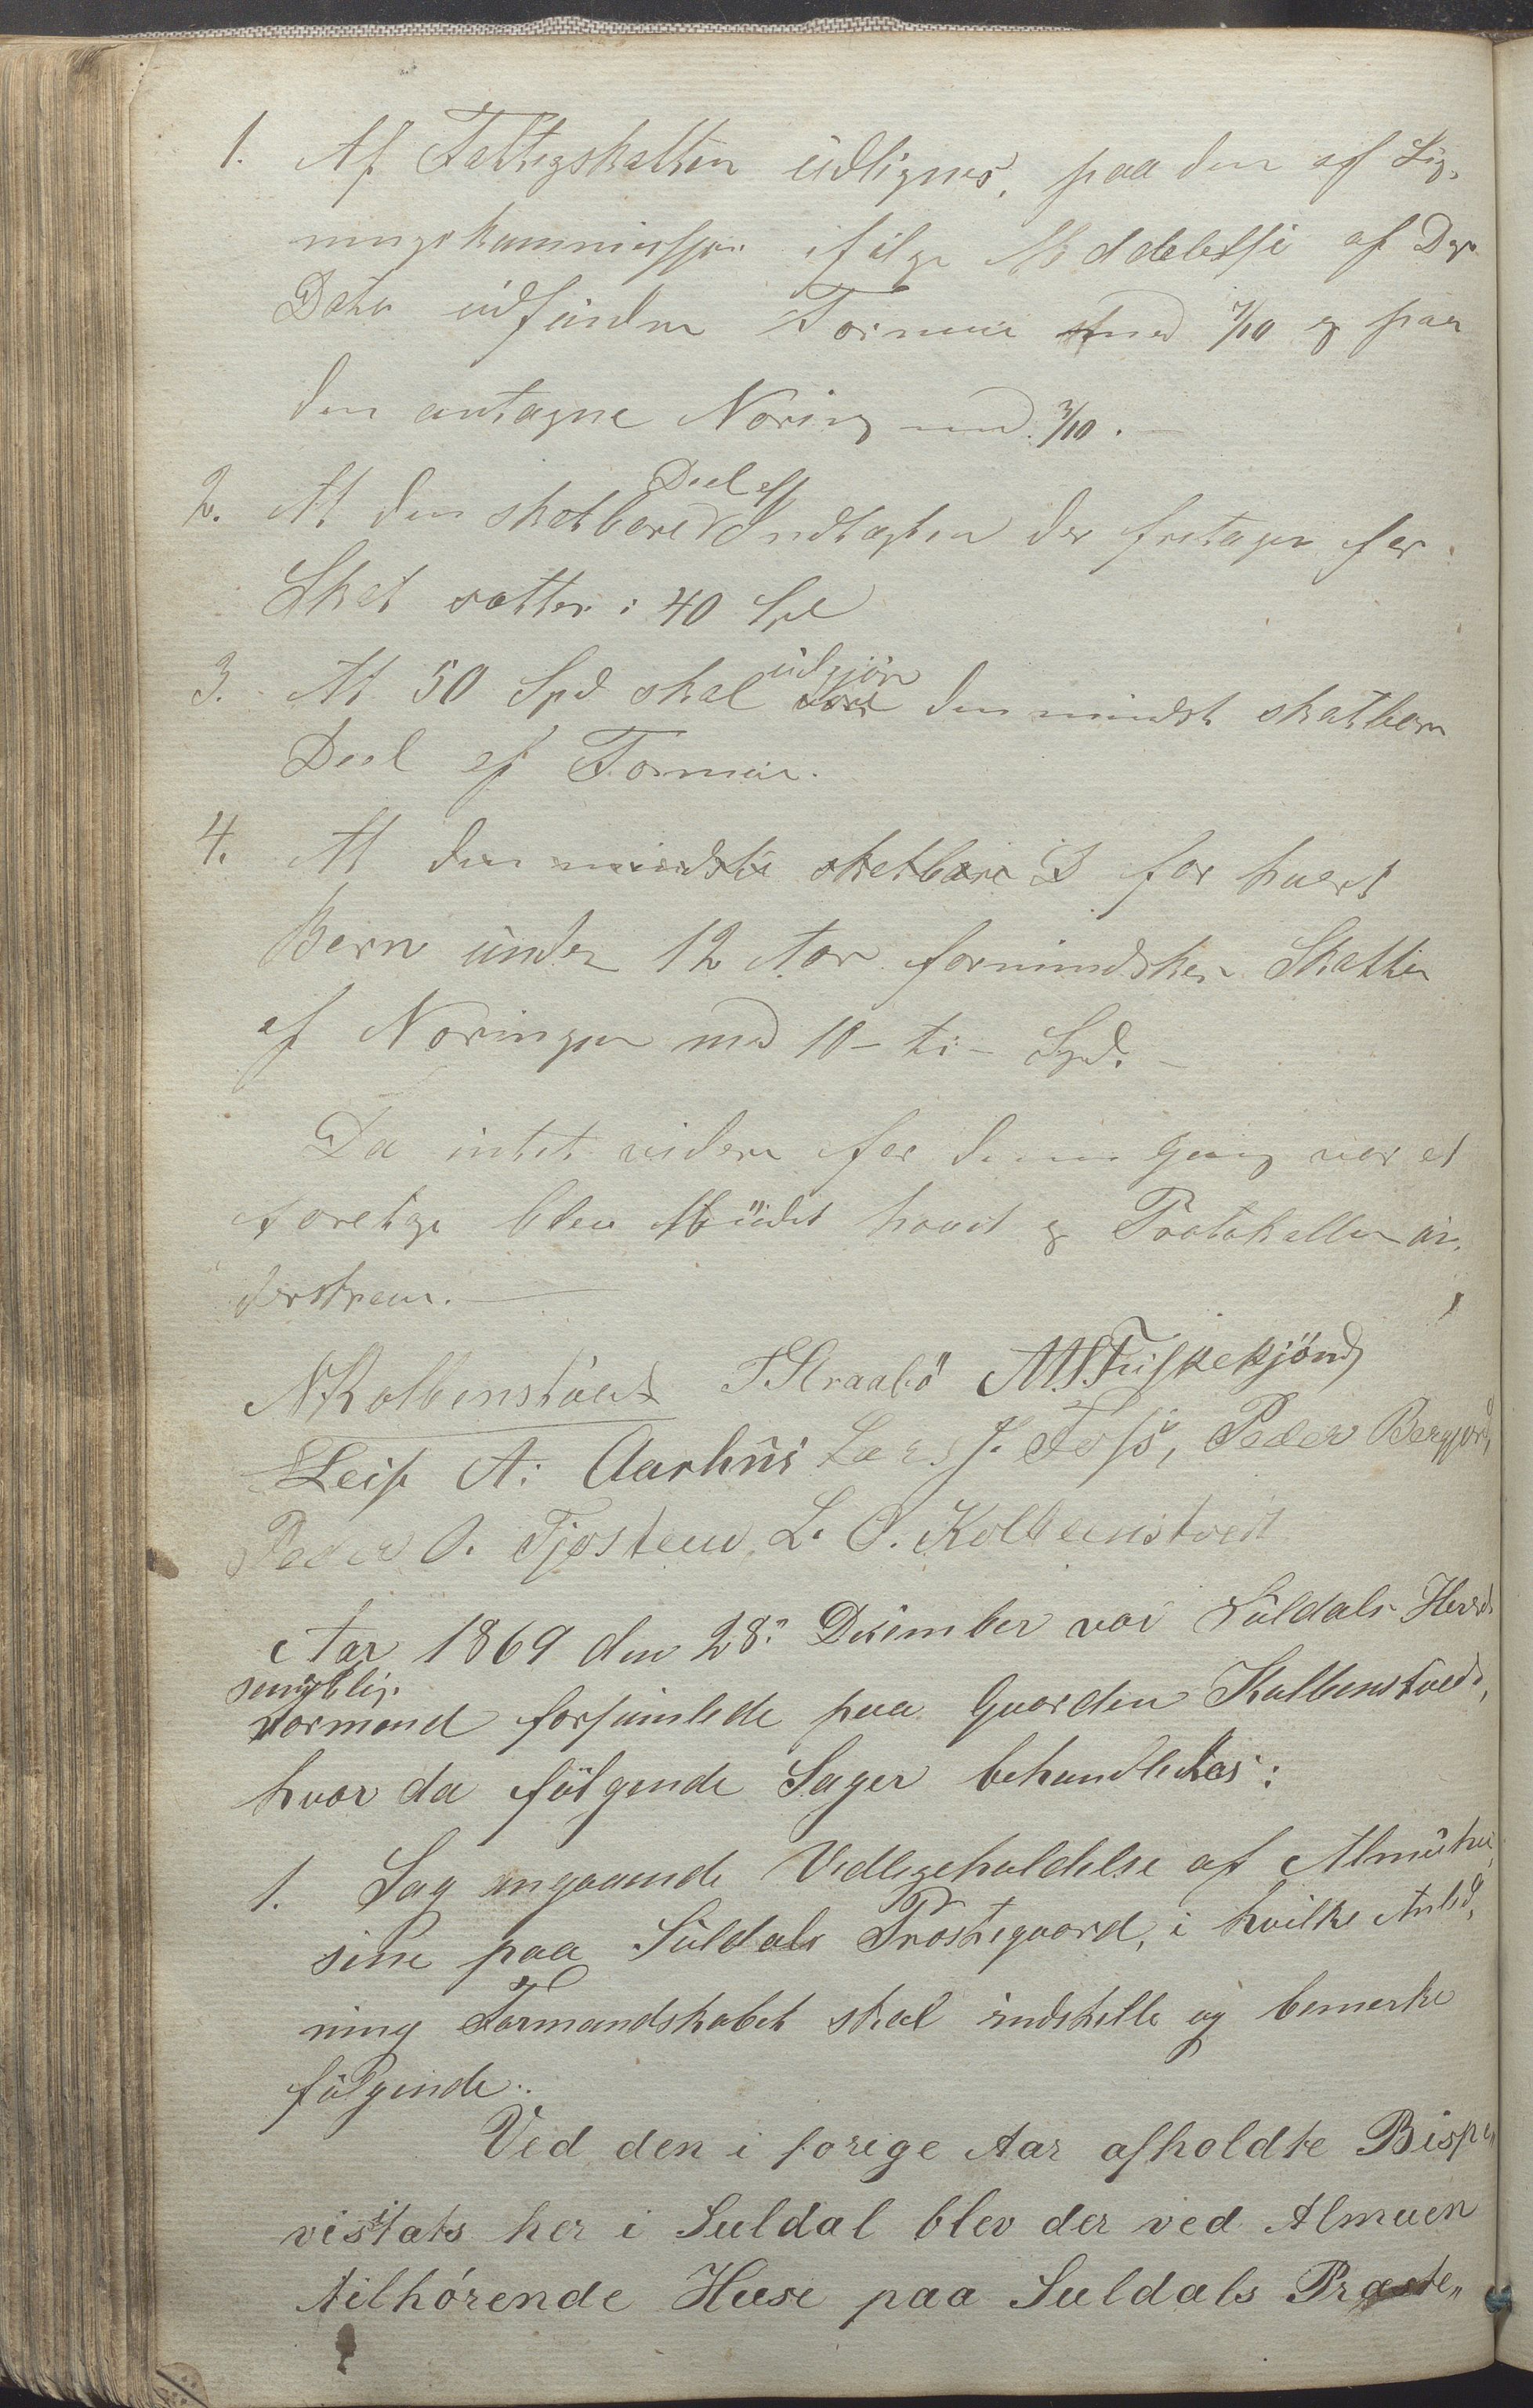 1. Af Fattigskatten udlignes, paa den af Lig-
ningskommissjon ifølge Meddelelse af Dgs
Dato udfundne Formue med 7/10 og paa
den antagne Næring med 3/10.
2. At den skatbare Deel af Indtægten der fritages for
Skat sættes i 40 Spd
3. At 50 Spd skal udgjøre den mindst skatbare
Deel af Formue.
4. At den mindste skatbare I for hvert
Barn under 12 Aar formindskes Skatten
af Næringen med 10 - ti - Spd.
Da intet videre for denne Gang var at
foretage blev Mødet hævet og Protokollen un-
derskreven.
N Kolbenstvedt T Straabø M S Fiskekjønd
Leif A. Aarhus Lars J. Foss, Peder Bergjord,
Peder O. Tjostem, L. O. Kolbenstvedt
Aar 1869 den 28. December var Suldals Herreds
samtlige
Formænd forsamlede paa Gaarden Kolbenstvedt,
hvor da følgende Sager behandledes:
1. Sag angaaende Vedligeholdelse af Almuehu-
sene paa Suldals Præstegaard, i hvilke Anled-
ning Formandskabet skal indstille og bemærke
følgende:
Ved den i forige Aar afholdte Bispe„
visitats her i Suldal blev der ved Almuen
tilhørende Huse paa Suldals Præste„